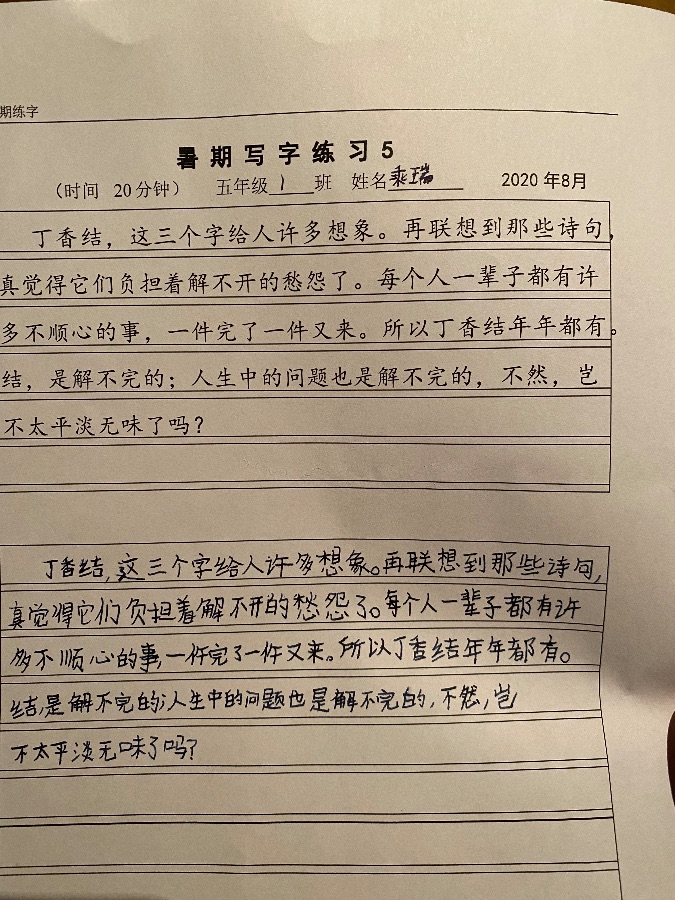 期练字
暑期写字练习5
（时间 20分钟） 五年级 1 班 姓名 乘瑞 2020年8月
丁香结，这三个字给人许多想象。再联想到那些诗句，
真觉得它们负担着解不开的愁怨了。每个人一辈子都有许
多不顺心的事，一件完了一件又来。所以丁香结年年都有。
结，是解不完的；人生中的问题也是解不完的，不然，岂
不太平淡无味了吗？
丁香结,这三个字给人许多想象。再联想到那些诗句,
真觉得它们负担着解不开的愁怨了。每个人一辈子都有许
多不顺心的事,一件完了一件又来。所以丁香结年年都有。
结,是解不完的;人生中的问题也是解不完的,不然,岂
不太平淡无味了吗?